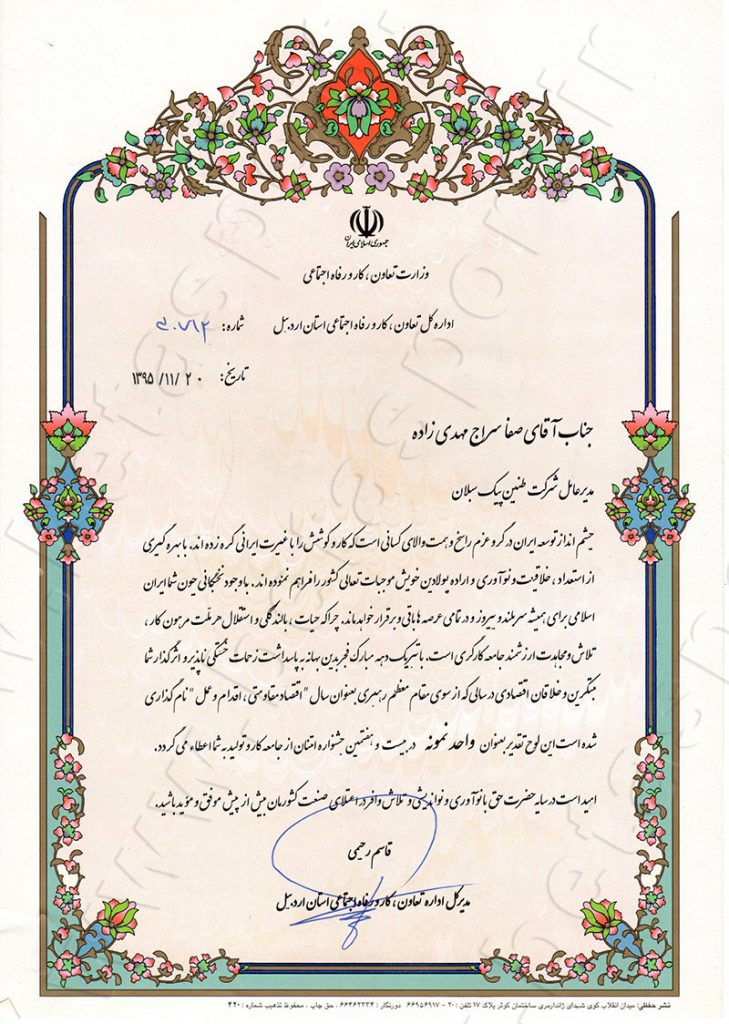 جمهوری اسلامی ایران
وزارت تعاون، کار و رفاه اجتماعی
اداره کل تعاون، کار و رفاه اجتماعی استان اردبیل
شماره:
تاریخ: ۱۳۹۵/۱۱/۲۰
جناب آقای صفا سراج مهدی زاده
مدیرعامل شرکت طنین پیک سبلان
چشم انداز توسعه ایران در گرو عزم راسخ و همت والای کسانی است که کار و کوشش را با غیرت ایرانی گره زده اند، با بهره گیری
از استعداد، خلاقیت و نوآوری و اراده پولادین خویش موجبات تعالی کشور را فراهم نموده اند. با وجود نخبگانی چون شما ایران
اسلامی برای همیشه سربلند و پیروز و در تمامی عرصه ها باقی و برقرار خواهد ماند. چرا که حیات، بالندگی و استقلال هر ملت مرهون کار،
تلاش و مجاهدت ارزشمند جامعه کارگری است. با تبریک دهه مبارک فجر بدین بهانه به پاسداشت زحمات خستگی ناپذیر و اثرگذار شما
مبتکرین و خلاقان اقتصادی در سالی که از سوی مقام معظم رهبری بعنوان سال "اقتصاد مقاومتی، اقدام و عمل" نام گذاری
شده است این لوح تقدیر بعنوان واحد نمونه در بیست و هفتمین جشنواره امتنان از جامعه کار و تولید به شما اعطاء می گردد.
امید است در سایه حضرت حق با نوآوری و نواندیشی و تلاش وافر در اعتلای صنعت کشورمان بیش از پیش موفق و مؤید باشید.
قاسم رحیمی
مدیرکل اداره تعاون، کار و رفاه اجتماعی استان اردبیل
نشر حقفقی: میدان انقلاب کوی شهدای ژاندارمری ساختمان کوثر پلاک ۱۷ تلفن: ۲۰ - ۶۶۹۵۶۹۱۷ دورنگار: ۶۶۴۶۲۳۳۴ . حق چاپ . محفوظ تذهیب شماره: ۴۲۰